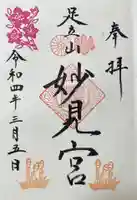 奉拝
足立山
妙見宮
令和四年三月五日